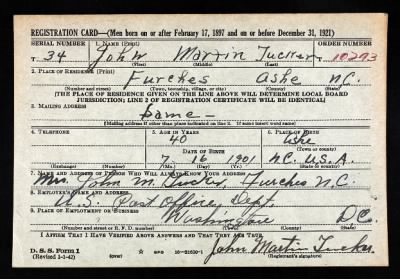 REGISTRATION CARD—(Men born on or after February 17, 1897 and on or before December 31, 1921)
SERIAL NUMBER 1. NAME (Print) ORDER NUMBER
T 34 John Martin Tucker 10293
(First) (Middle) (Last)
2. PLACE OF RESIDENCE (Print)
Furches Ashe N.C.
(Number and street) (Town, township, village, or city) (County) (State)
[THE PLACE OF RESIDENCE GIVEN ON THE LINE ABOVE WILL DETERMINE LOCAL BOARD
JURISDICTION; LINE 2 OF REGISTRATION CERTIFICATE WILL BE IDENTICAL]
3. MAILING ADDRESS
Same –
[Mailing address if other than place indicated on line 2. If same insert word same]
4. TELEPHONE 5. AGE IN YEARS 6. PLACE OF BIRTH
40 Ashe
DATE OF BIRTH (Town or county)
7 16 1901 N.C. U.S.A.
(Exchange) (Number) (Mo.) (Day) (Yr.) (State or country)
7. NAME AND ADDRESS OF PERSON WHO WILL ALWAYS KNOW YOUR ADDRESS
Mrs. John M. Tucker, Furches N.C.
8. EMPLOYER'S NAME AND ADDRESS
U.S. Post Office Dept.
9. PLACE OF EMPLOYMENT OR BUSINESS
Washington D.C.
(Number and street or R. F. D. number) (Town) (County) (State)
I AFFIRM THAT I HAVE VERIFIED ABOVE ANSWERS AND THAT THEY ARE TRUE.
D. S. S. Form 1
(Revised 1-1-42) (over) 16—21630-1
John Martin Tucker
(Registrant's signature)